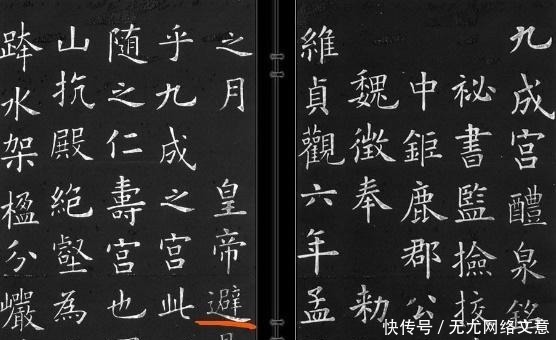 九成宮醴泉銘
祕書監撿挍
中鉅鹿郡公
魏徵奉 勑
維貞觀六年孟
之月 皇帝避
乎九成之宮此
随之仁壽宮也
山抗殿絶壑為
跨水架楹分巖
快传号 / 无尤网络文意